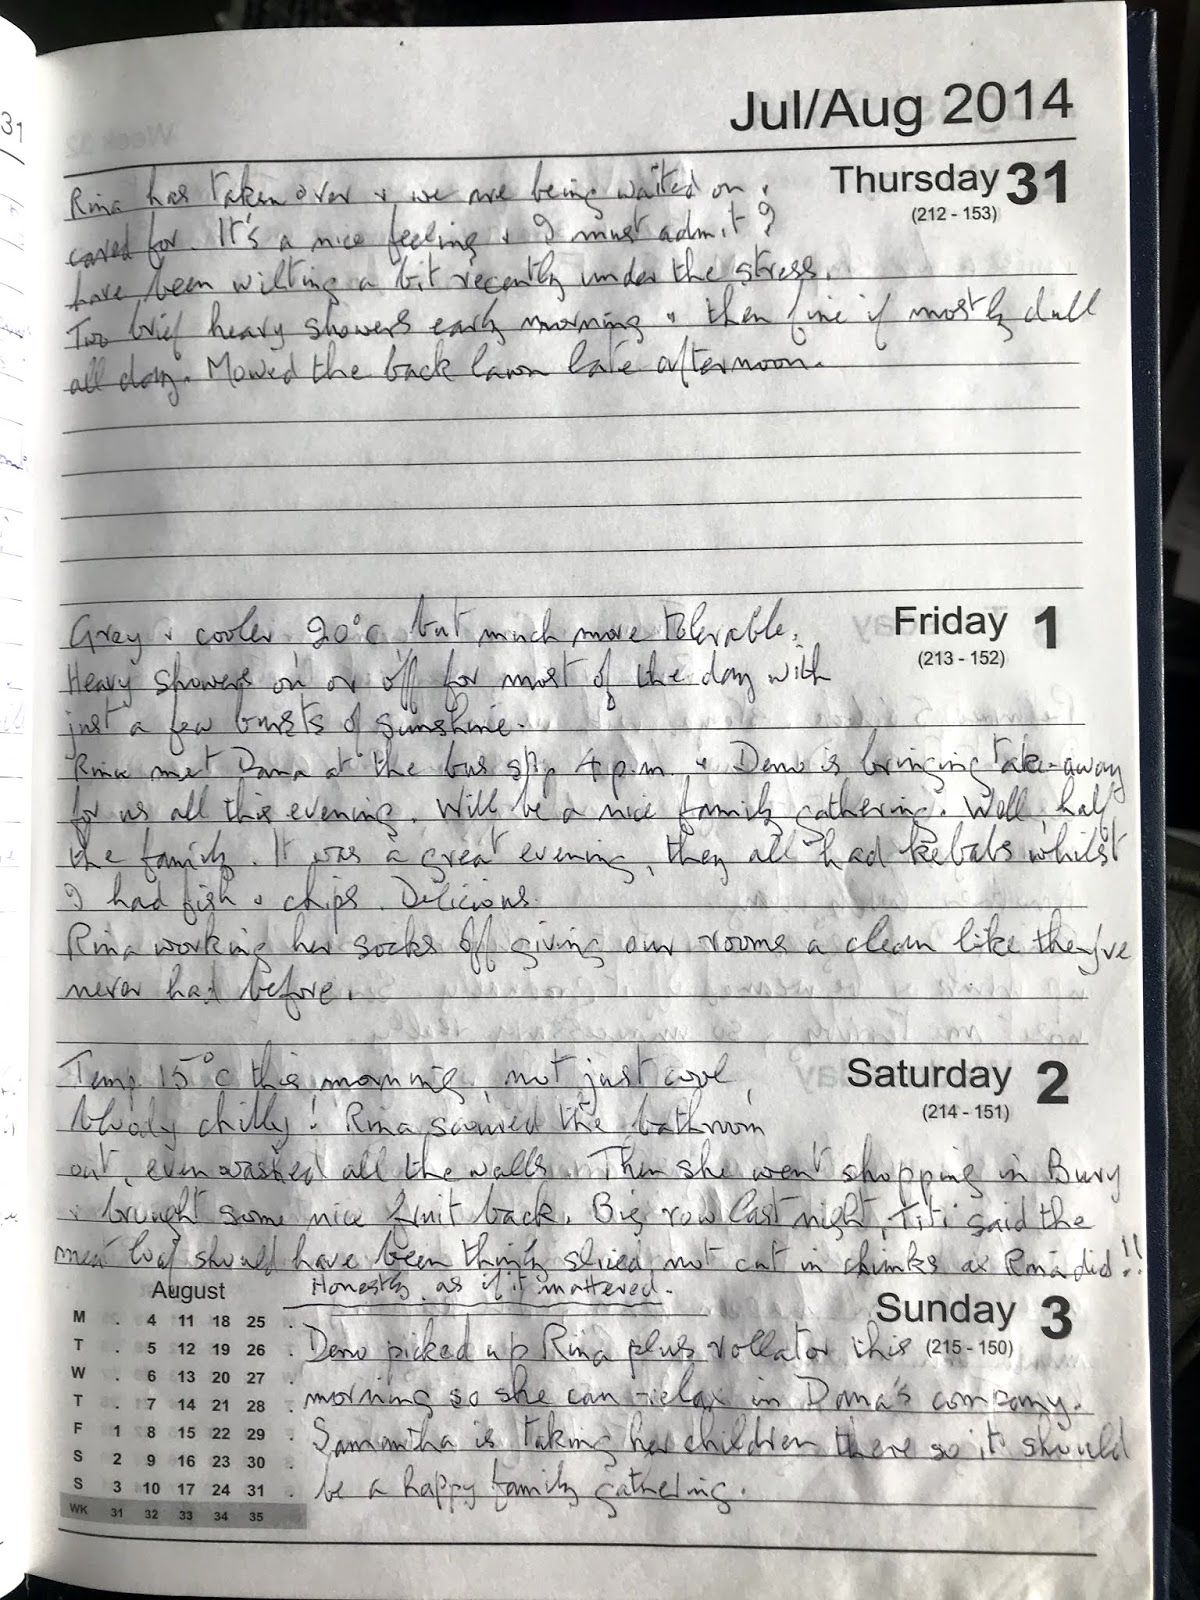 31
Jul/Aug 2014
Thursday 31
(212 - 153)
Rina has taken over & we are being waited on &
cared for. It's a nice feeling & I must admit I
have been wilting a bit recently under the stress.
Two brief heavy showers early morning & then fine if mostly dull
all day. Mowed the back lawn late afternoon.
Friday 1
(213 - 152)
Grey & cooler 20°c but much more tolerable.
Heavy showers on or off for most of the day with
just a few bursts of sunshine.
Rina met Dana at the bus stop 4 p.m. & Deno is bringing take-away
for us all this evening. Will be a nice family gathering. Well, half
the family. It was a great evening, they all had kebabs whilst
I had fish & chips. Delicious.
Rina working her socks off giving our rooms a clean like they've
never had before.
Saturday 2
(214 - 151)
Temp 15°c this morning, not just cool,
bloody chilly! Rina scoured the bathroom
out, even washed all the walls. Then she went shopping in Bury
& brought some nice fruit back. Big row last night, Titi said the
meat loaf should have been thinly sliced, not cut in chunks as Rina did!!
Honestly, as if it mattered.
Sunday 3
(215 - 150)
Deno picked up Rina plus rollator this
morning so she can relax in Dana's company.
Samantha is taking her children there so it should
be a happy family gathering.
August
M . 4 11 18 25 .
T . 5 12 19 26 .
W . 6 13 20 27 .
T . 7 14 21 28 .
F 1 8 15 22 29 .
S 2 9 16 23 30 .
S 3 10 17 24 31 .
WK 31 32 33 34 35